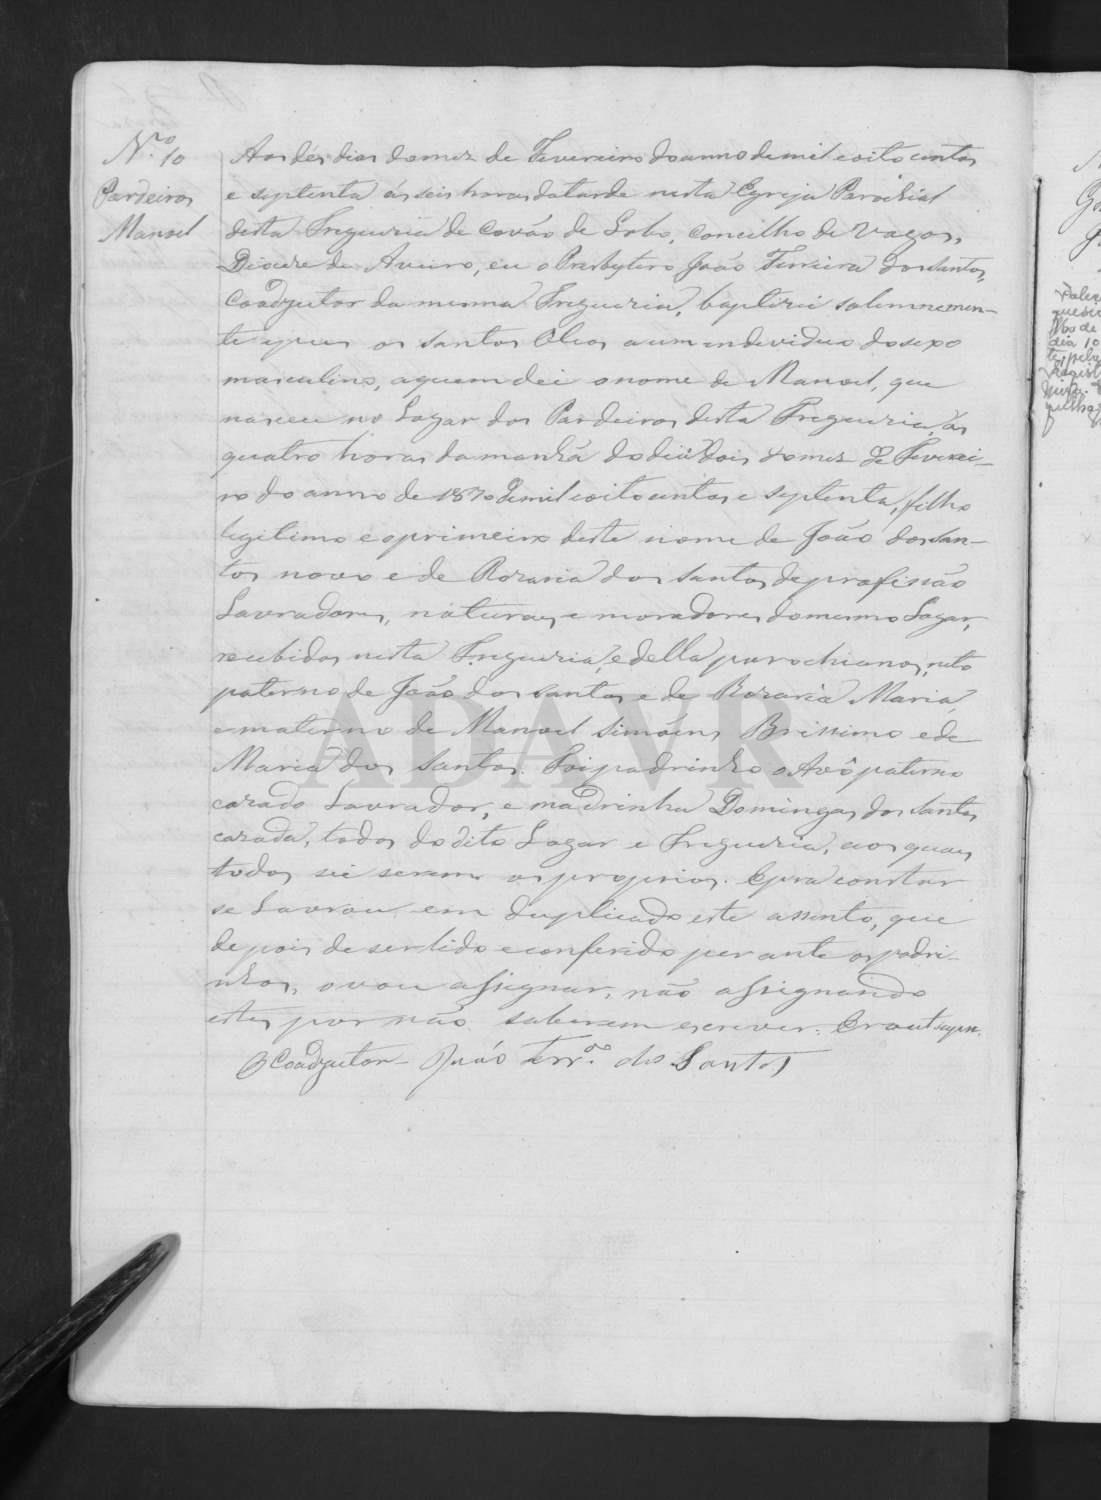 N.º 10
Pardeiros
Manoel
Aos dés dias do mez de Fevereiro do anno de mil e oito centos
e septenta ás seis horas da tarde nesta Egreja Parochial
desta Freguezia de Covão de Lobo, concelho de Vagos,
Diocese de Aveiro, eu o Presbytero João Ferreira dos Santos,
Coadjutor da mesma Freguezia, baptizei solemnemen-
te e puz os santos Oleos a um individuo do sexo
masculino, a quem dei o nome de Manoel, que
nasceu no Logar dos Pardeiros desta Freguezia, ás
quatro horas da manhã do dia dois do mez de Feverei-
ro do anno de 1870 de mil e oito centos e septenta, filho
legitimo e o primeiro deste nome de João dos San-
tos novo e de Rozaria dos Santos, de profissão
Lavradores, naturaes e moradores do mesmo Logar,
recebidos nesta Freguezia, e della parochianos, neto
paterno de João dos Santos e de Rozaria Maria,
e materno de Manoel Simões Brissimo e de
Maria dos Santos. Foi padrinho o Avô paterno
cazado Lavrador, e madrinha Domingas dos Santos
cazada, todos do dito Logar e Freguezia, aos quaes
todos sei serem os proprios. E pra constar
se Lavrou em duplicado este assento, que
depois de ser lido e conferido perante os padri-
nhos, o vou assignar, não assignando
estes por não saberem escrever. Era ut supra.
O Coadjutor João Ferr.ª dos Santos
ADAVR